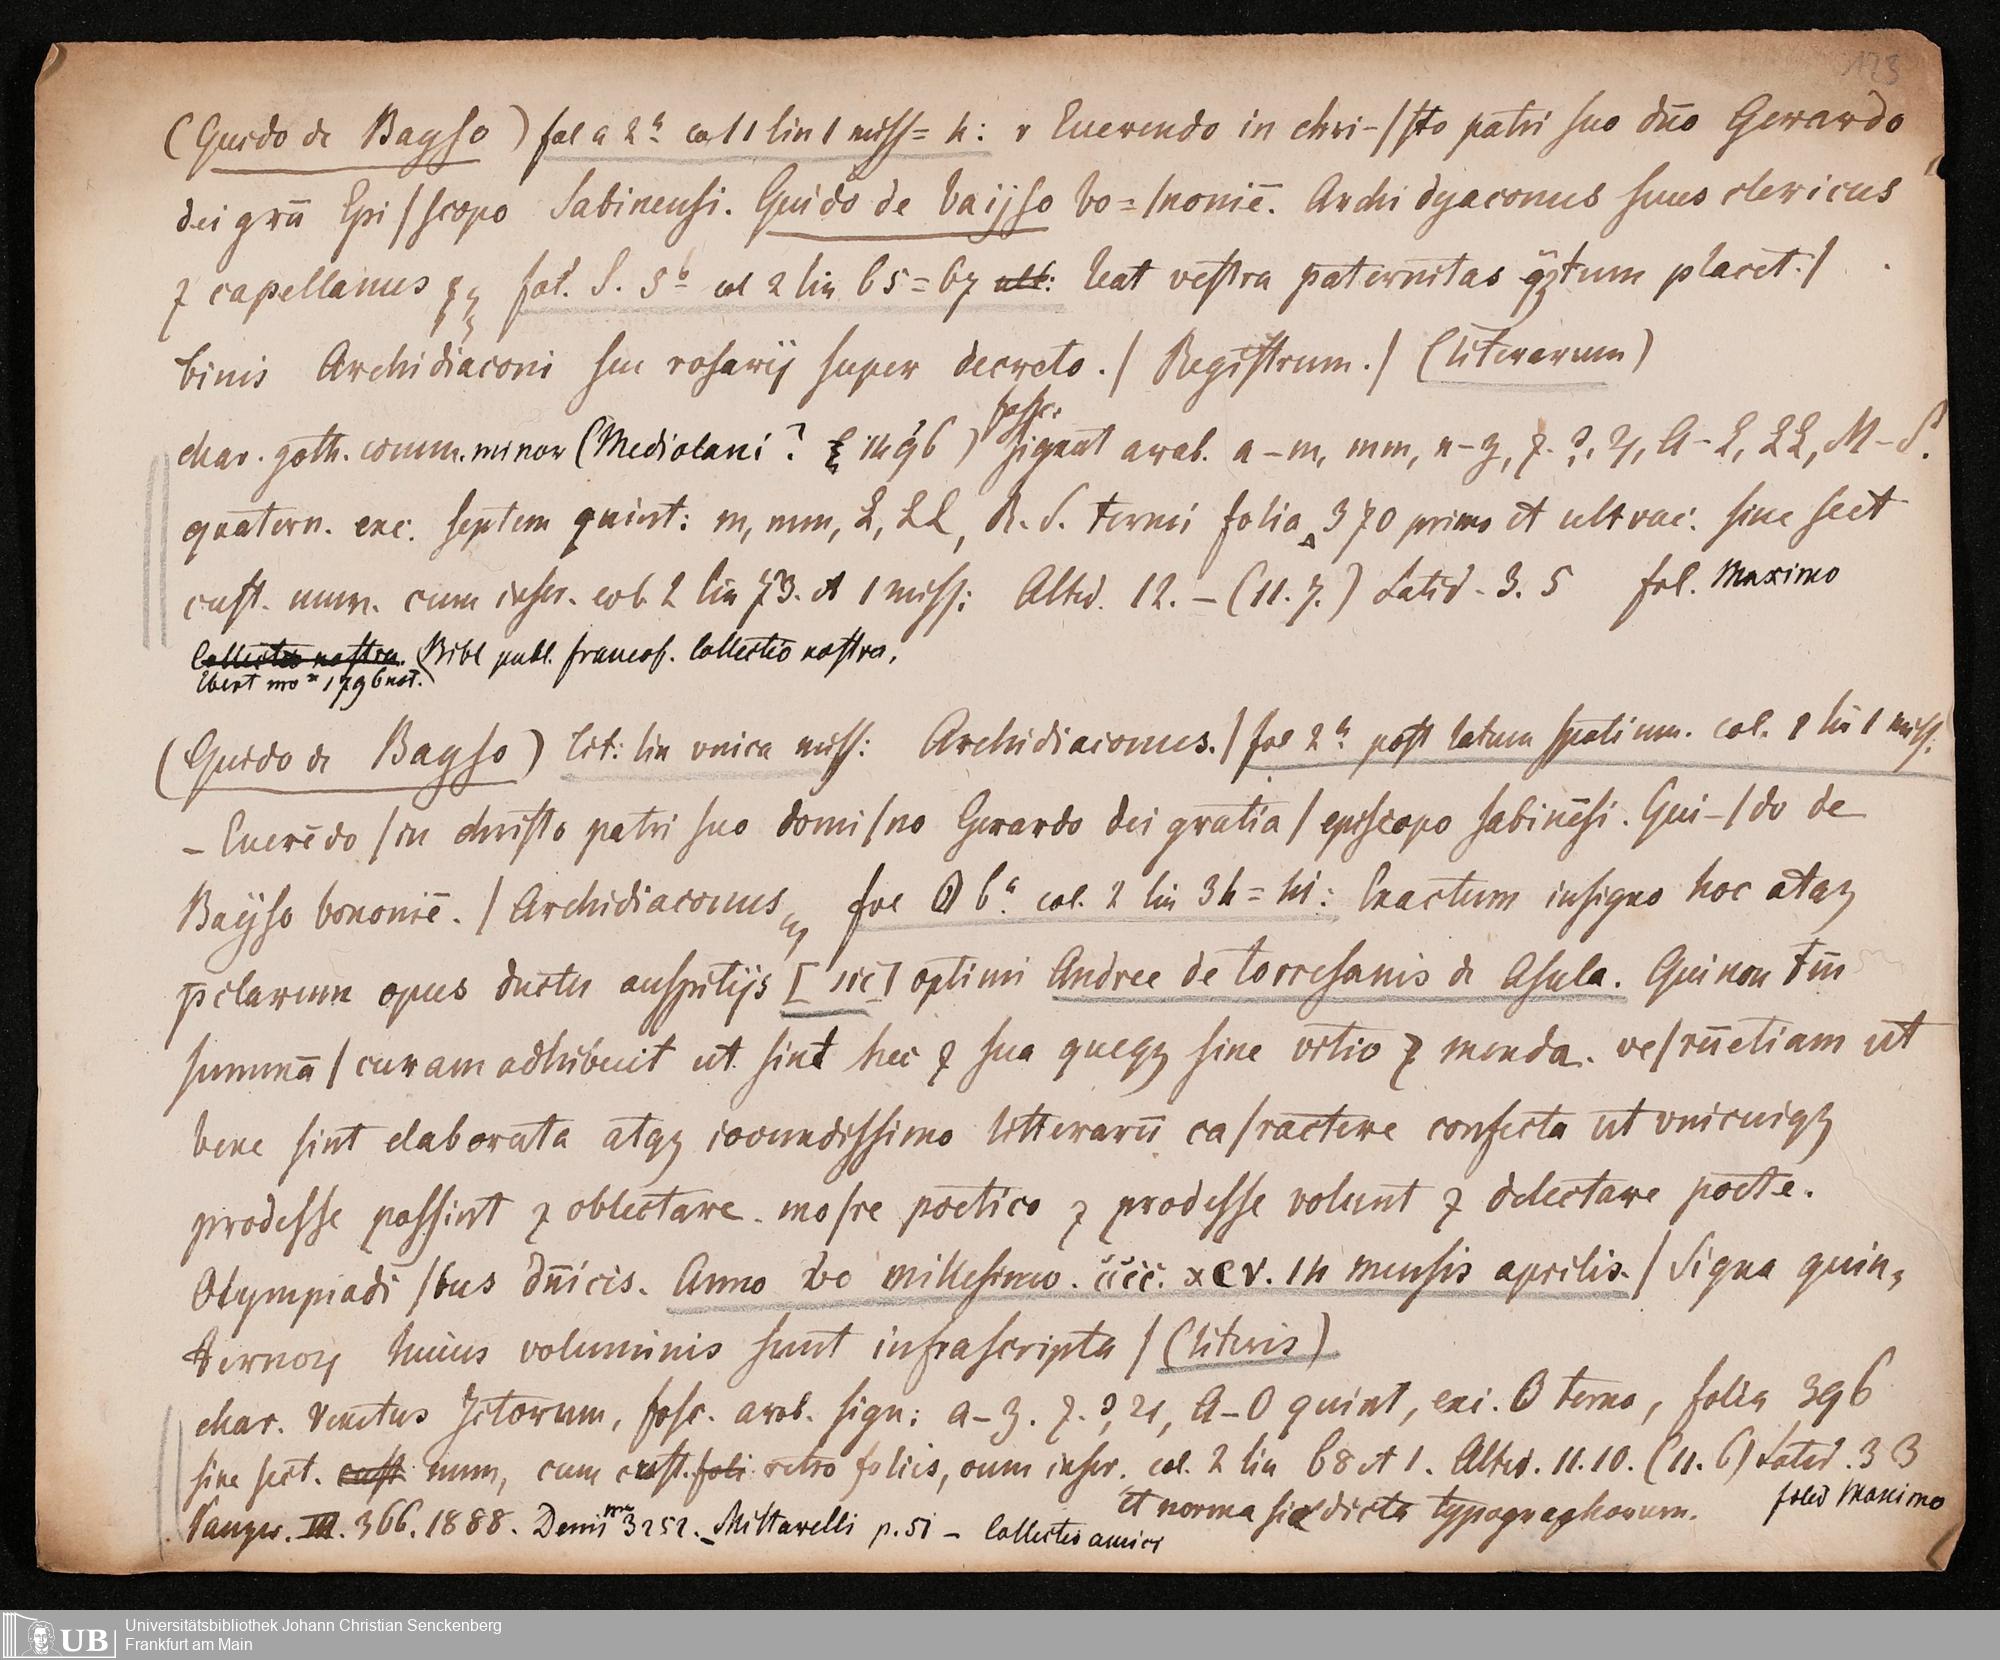 123
(Guido de Bayso) fol a 2ᵃ col 1 lin 1 miss= h: r Euerendo in chri-/sto patri suo dūo Gerardo
dei grā Epi/scopo Sabinensi. Guido de baijso bo=/noniē. Archi dyaconus suus clericus
⁊ capellanus fol. S. 5ᵇ col 2 lin 65=67 ult: leat vestra paternitas placet./
binis Archidiaconi seu rosarij super decreto./ Registrum./ (literarum)
char. goth. comm. minor (Mediolani? 1496) fosc. signat arab. a–m, mm, n–z, ⁊. ?. ꝝ, A–L, LL, M–S.
quatern. exc. septem quint: m, mm, L, LL, R. S. terni folia 370 primo et ult vac: sine sect
cust. num. cum inscr. col. 2 lin 73. et 1 miss: Altid. 12.–(11.7.) Latid. 3. 5 fol. Maximo
Collectio nostra. (Bibl publ. francof. Collectio nostra.
Ebert nro 1796 not.
(Guido de Bayso) tit: lin vnica miss: Archidiaconus./ fol 2ᵃ post latum spatium. col. 1 lin 1 miss.
– Euerēdo/in christo patri suo domi/no Gerardo dei gratia/episcopo sabinēsi. Gui-/do de
Bayso bononiē./Archidiaconus fol O 6ᵃ col. 2 lin 34=41: Exactum insigne hoc atqꝫ
p̄clarum opus ductu auspitijs [sic] optimi Andree de torresanis de Asula. Qui non tm̄
summā/curam adhibuit ut sint hec ⁊ sua queqꝫ sine vitio ⁊ menda. ve/rūetiam ut
bene sint elaborata atqꝫ iocundissimo litterarū ca/ractere confecta ut vnicuiqꝫ
prodesse possint ⁊ oblectare. mo/re poetico ⁊ prodesse volunt ⁊ delectare poete.
Olympiadi/bus dn̄icis. Anno vo millesimo. cccc. xcv. 14 mensis aprilis./Signa quin,
ternoꝝ huius voluminis sunt infrascripta/(literis)
char. Venetus Jctorum, fosc. arab. sign: a–z. ⁊. ?, ꝝ, A–O quint, exc. O terno, folia 396
sine sect. cust num, cum cust. foli retro foliis, cum inscr. col. 2 lin 68 et 1. Altid. 11.10. (11.6) Latid. 3 3
et norma sic dicta typographorum. folio Maximo
Panzer. III. 366. 1888. Denis 3252. Mittarelli p. 51 – Collectio amici
Universitätsbibliothek Johann Christian Senckenberg
Frankfurt am Main
UB